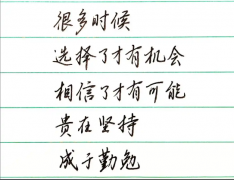 很多时候
选择了才有机会
相信了才有可能
贵在坚持
成于勤勉